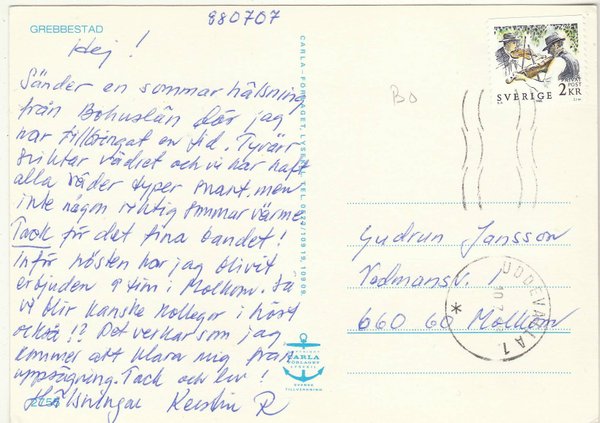 880707
GREBBESTAD
Hej!
Sänder en sommar hälsning
från Bohuslän där jag
har tillbringat en tid. Tyvärr
sviktar vädret och vi har haft
alla väder typer snart, men
inte någon riktig sommar värme
Tack för det fina bandet!
Inför hösten har jag blivit
erbjuden 9 tim i Molkom. Så
vi blir kanske kollegor i höst
också!? Det verkar som jag
kommer att klara mig från
uppsägning. Tack och lov!
Hälsningar Kerstin R
2756
CARLA-FÖRLAGET, LYSEKIL, TEL. 0523/109 19, 109 09
COPYRIGHT
CARLA
FÖRLAGET
LYSEKIL
SVENSK
TILLVERKNING
BO
SVERIGE 2KR
POST
Gudrun Jansson
Vedmansv. 1
660 60 Molkom
UDDEVALLA 1